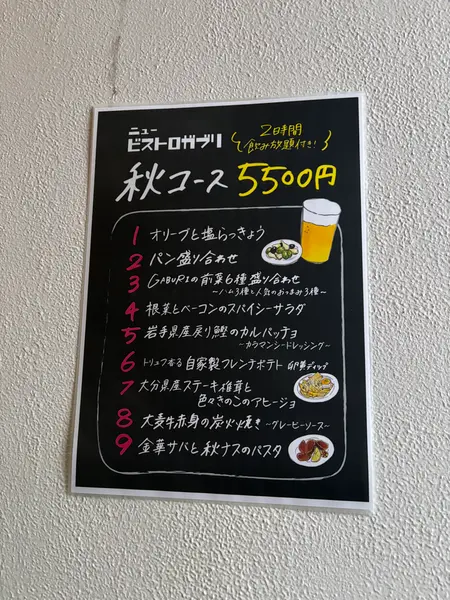 ニュー
ビストロガブリ
2時間
飲み放題付き!
秋コース 5500円
1 オリーブと塩らっきょう
2 パン盛り合わせ
3 GABURIの前菜6種盛り合わせ
～ハム3種と人気のおつまみ3種～
4 根菜とベーコンのスパイシーサラダ
5 岩手県産戻り鰹のカルパッチョ
～カラマンシードレッシング～
6 トリュフ香る 自家製フレンチポテト 卵黄ディップ
7 大分県産ステーキ椎茸と
色々きのこのアヒージョ
8 大麦牛赤身の炭火焼き ～グレービーソース～
9 金華サバと秋ナスのパスタ